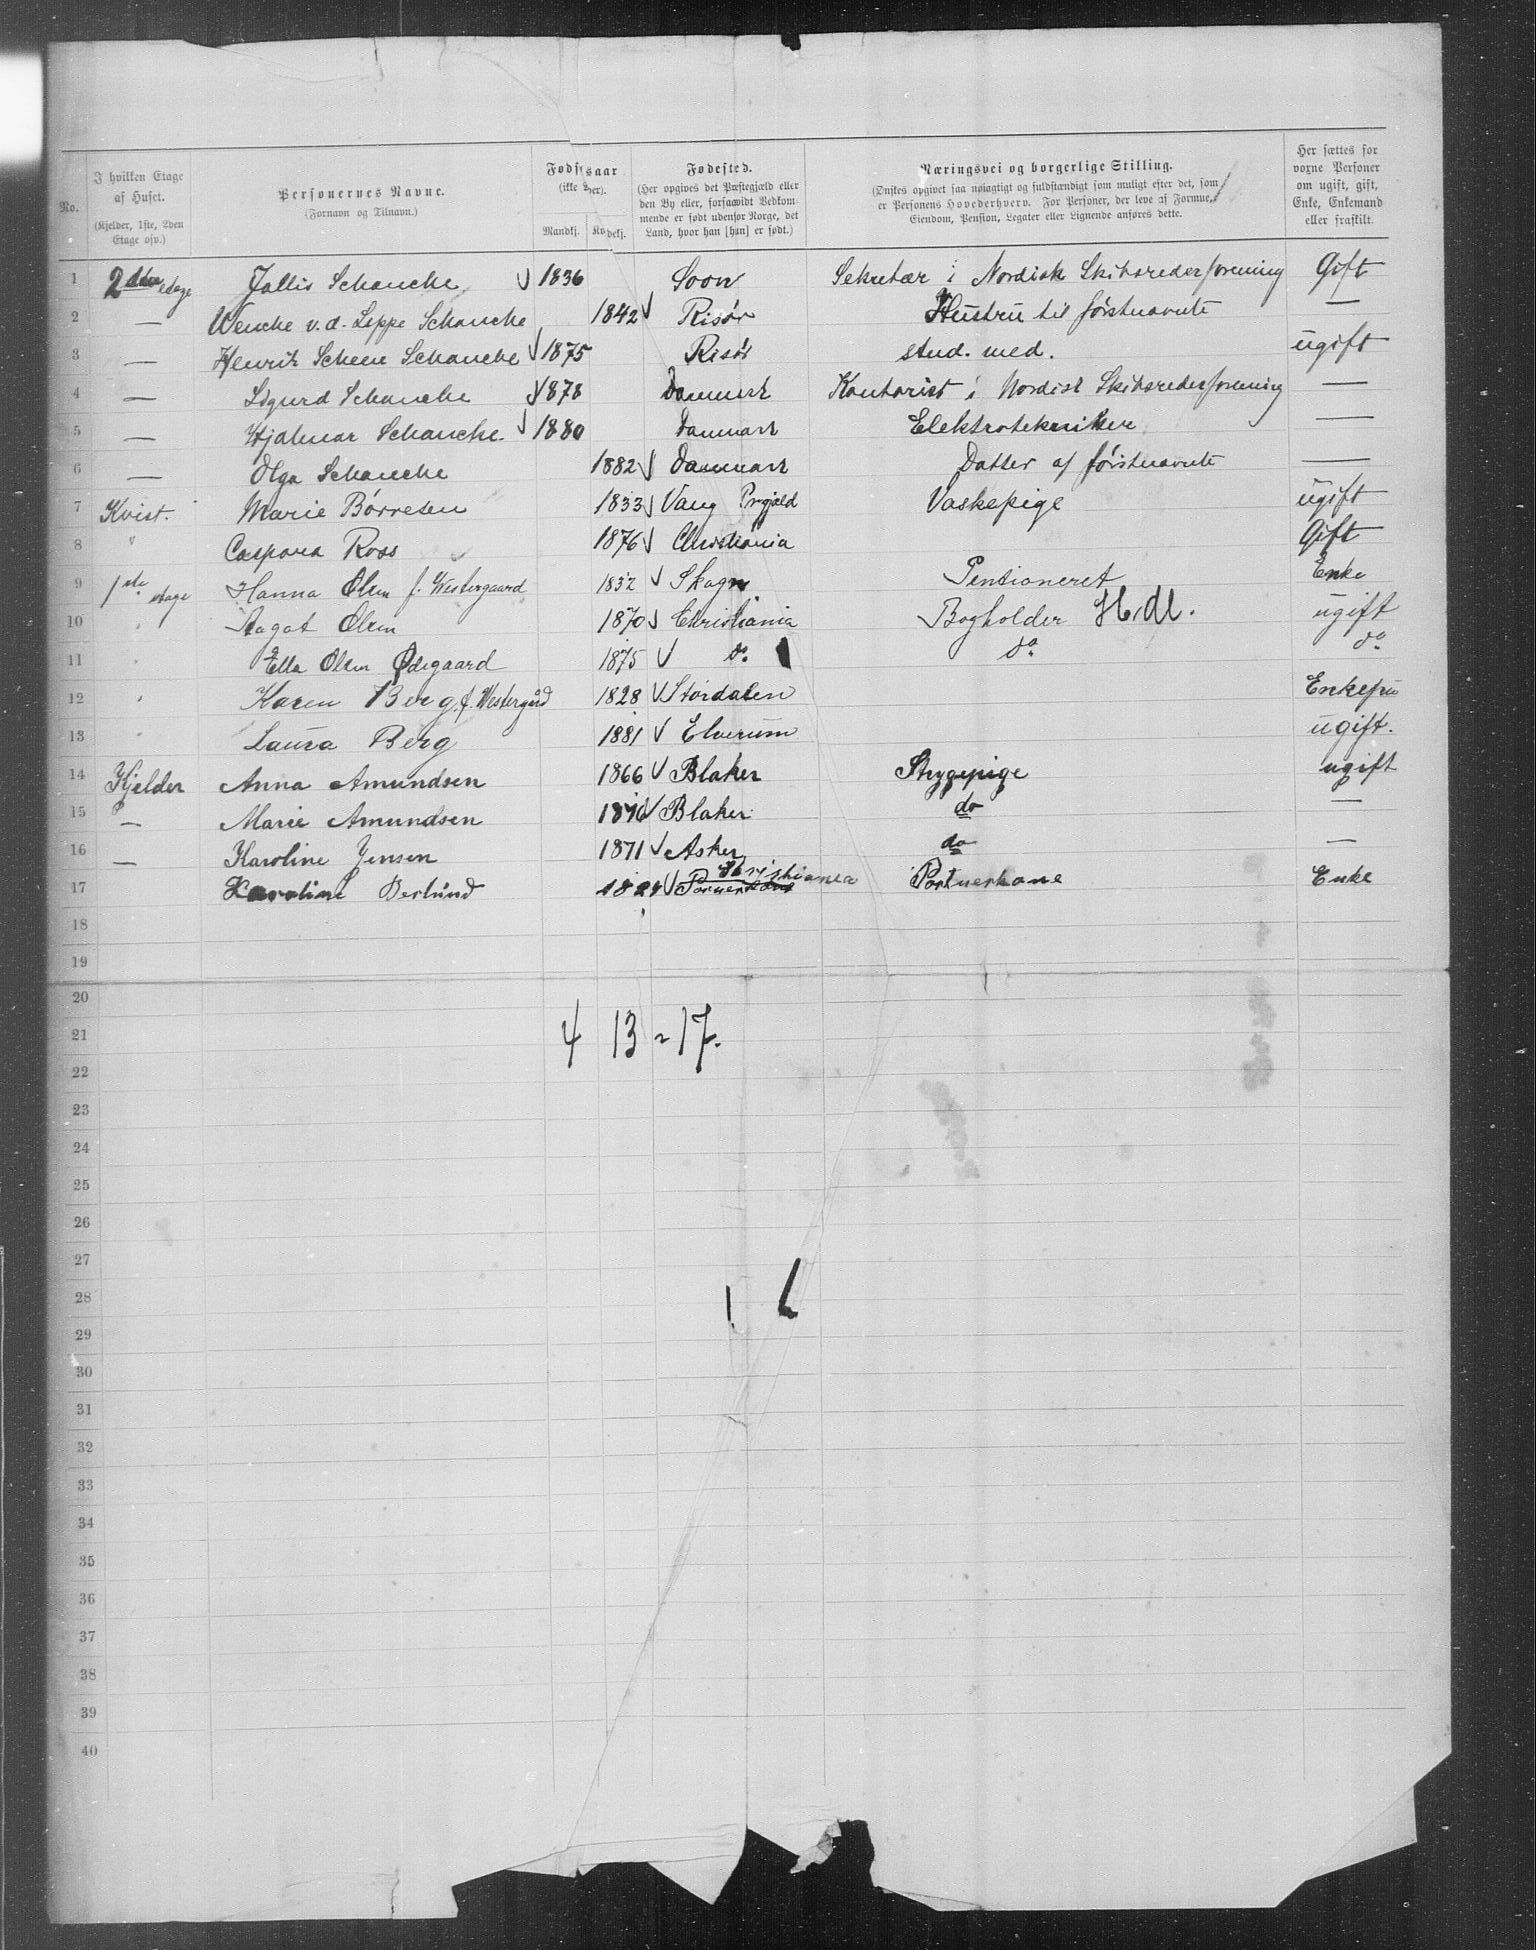 No.
I hvilken Etage af Huset.
(Kjelder, 1ste, 2den Etage osv.)
Personernes Navne.
(Fornavn og Tilnavn.)
Fødselsaar
(ikke Alder).
Mandkj. Kvindekj.
Fødested.
(Her opgives det Præstegjæld eller den By eller, forsaavidt Vedkommende er født udenfor Norge, det Land, hvor han [hun] er født.)
Næringsvei og borgerlige Stilling.
(Ønskes opgivet saa nøiagtigt og fuldstændigt som muligt efter det, som er Personens Hovederhverv. For Personer, der leve af Formue, Eiendom, Pension, Legater eller Lignende anføres dette.
Her sættes for voxne Personer om ugift, gift, Enke, Enkemand eller fraskilt.
1 2den etage Jallis Schanche 1836 Soon Sekretær i Nordisk Skibsrederforening Gift
2 — Wenche v.d. Lippe Schanche 1842 Risør Hustru til førstnævnte —
3 — Henrik Scheen Schanche 1875 Risør stud. med. ugift
4 — Sigurd Schanche 1878 Danmark Kontorist i Nordisk Skibsrederforening —
5 — Hjalmar Schanche. 1880 Danmark Elektrotekniker —
6 — Olga Schanche 1882 Danmark Datter af førstnævnte —
7 Kvist. Marie Børresen 1833 Vang Prgjæld Vaskepige ugift
8 " Caspara Ross 1876 Christiania Gift
9 1ste etage Hanna Olsen f. Westergaard 1832 Skogn Pentioneret Enke
10 " Aagot Olsen 1870 Christiania Bogholder H.M. ugift
11 " Ella Olsen Ødegaard 1875 do. do. do.
12 " Karen Berg f. Westergård 1828 Stordalen Enkefru
13 " Laura Berg 1881 Elverum ugift.
14 Kjelder Anna Amundsen 1866 Blaker Strygepige ugift
15 — Marie Amundsen 1876 Blaker do —
16 — Karoline Jensen 1871 Asker do —
17 Karoline Berlund Kristiania Portnerkone Enke
18
19
20
21
4 13 = 17.
22
23
24
25
26
27
28
29
30
31
32
33
34
35
36
37
38
39
40